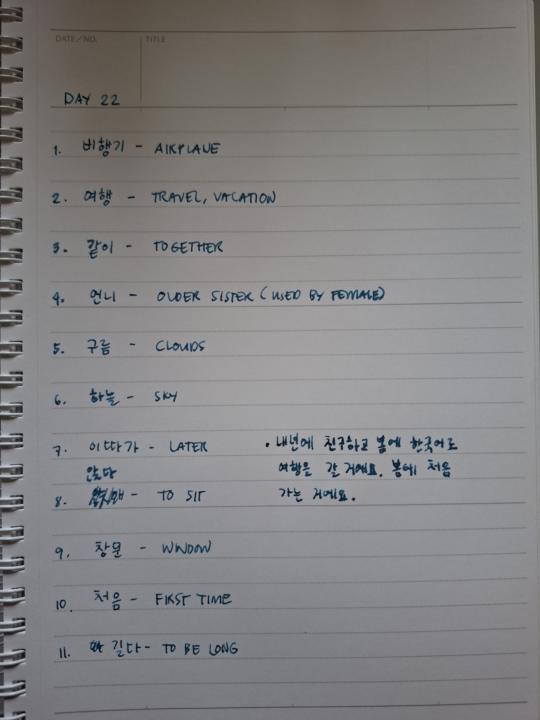 DATE/NO. TITLE
DAY 22
1. 비행기 - AIRPLANE
2. 여행 - TRAVEL, VACATION
3. 같이 - TOGETHER
4. 언니 - OLDER SISTER (USED BY FEMALE)
5. 구름 - CLOUDS
6. 하늘 - SKY
7. 이따가 - LATER
앉다
8. - TO SIT
9. 창문 - WINDOW
10. 처음 - FIRST TIME
11. 길다 - TO BE LONG
• 내년에 친구하고 봄에 한국어로
여행을 갈 거예요. 봄에 처음
가는 거예요.